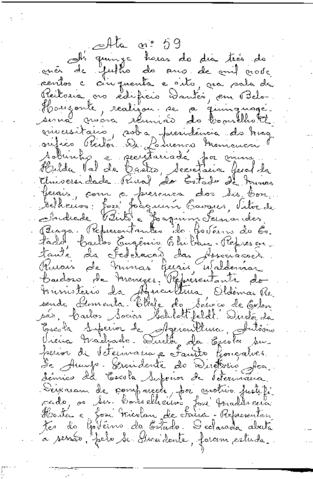 Ata nº 59
Às quinze horas do dia três do
mês de julho do ano de mil nove
centos e cinquenta e oito, na sala da
Reitoria no edifício Dantés, em Belo
Horizonte, realizou-se a quinquagé-
sima nona reunião do Conselho U-
niversitário, sob a presidência do Mag
nífico Reitor Dr. Lourenço Menicucci
Sobrinho e secretariada por mim
Hilda Val de Castro, Secretária Geral da
Universidade Rural do Estado de Minas
Gerais, com a presença dos Srs. Con-
selheiros: José Joaquim Borges, Vitor de
Andrade Brito e Joaquim Fernandes
Braga. Representantes do Govêrno do Es-
tado, Carlos Eugênio Represen-
tante da Federação das Associações
Rurais de Minas Gerais, Waldemar
Cardoso de Menezes, Representante do
Ministério da Agricultura Oldemar Re-
sende Chefe do Serviço de Exten-
são, Carlos Socias Schlottfeldt. Diretor da
Escola Superior de Agricultura, Antônio
Vieira Machado. Diretor da Escola Su-
perior de Veterinária e Fausto Gonçalves
de Araujo. Presidente do Diretório Aca-
dêmico da Escola Superior de Veterinária
Deixaram de comparecer por motivo justifi-
cado, os Srs. Conselheiros José Madureira
Horta e José Nicolau de Faria - Representan-
tes do Govêrno do Estado. Declarada aberta
a sessão, pelo Sr. Presidente, foram estuda-